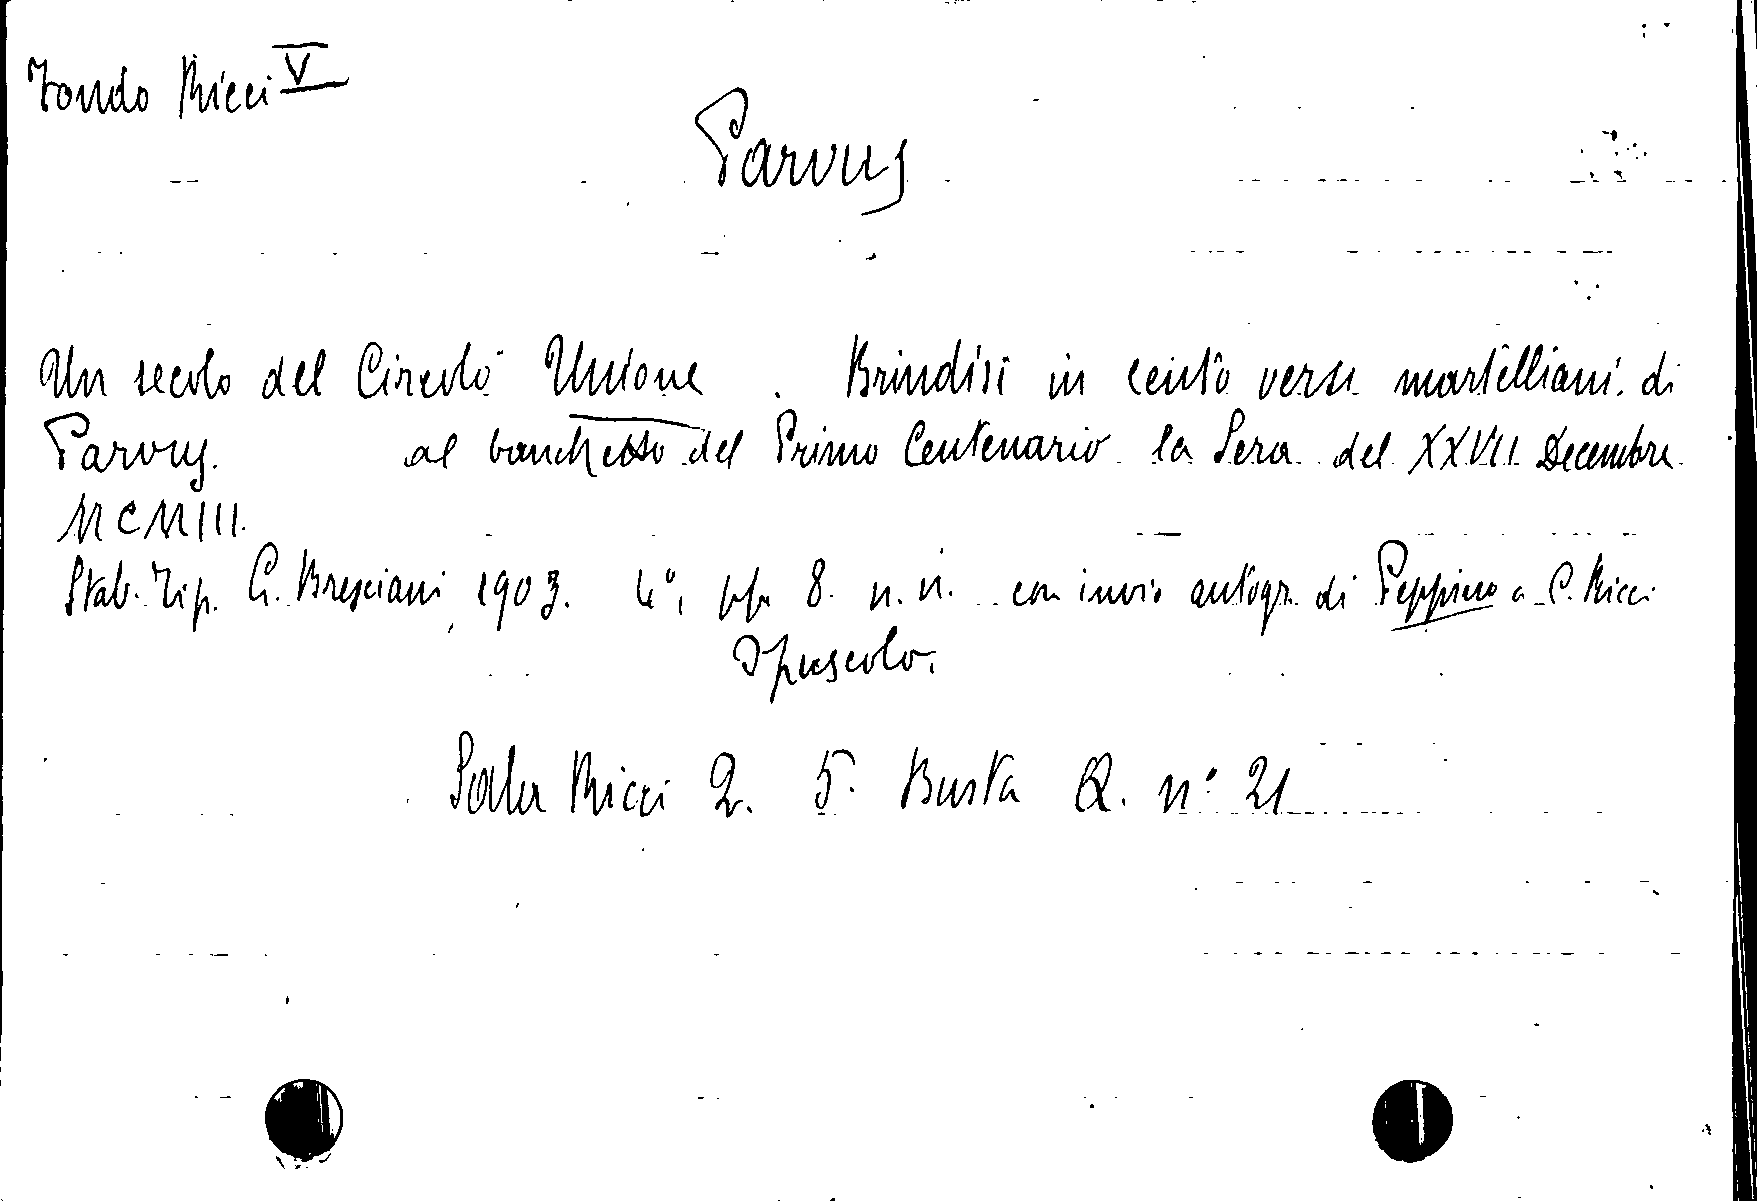 Fondo Ricci V
Parvus
Un secolo del Circolo Unione. Brindisi in cento versi martelliani di
Parvus. al banchetto del Primo Centenario la Sera del XXVII Decembre
MCMIII.
Stab. Tip. G. Bresciani, 1903. 4°, pp. 8. n. n. con invio autogr. di Peppino a C. Ricci
Opuscolo.
Sala Ricci 2. 5. Busta Q. n° 21